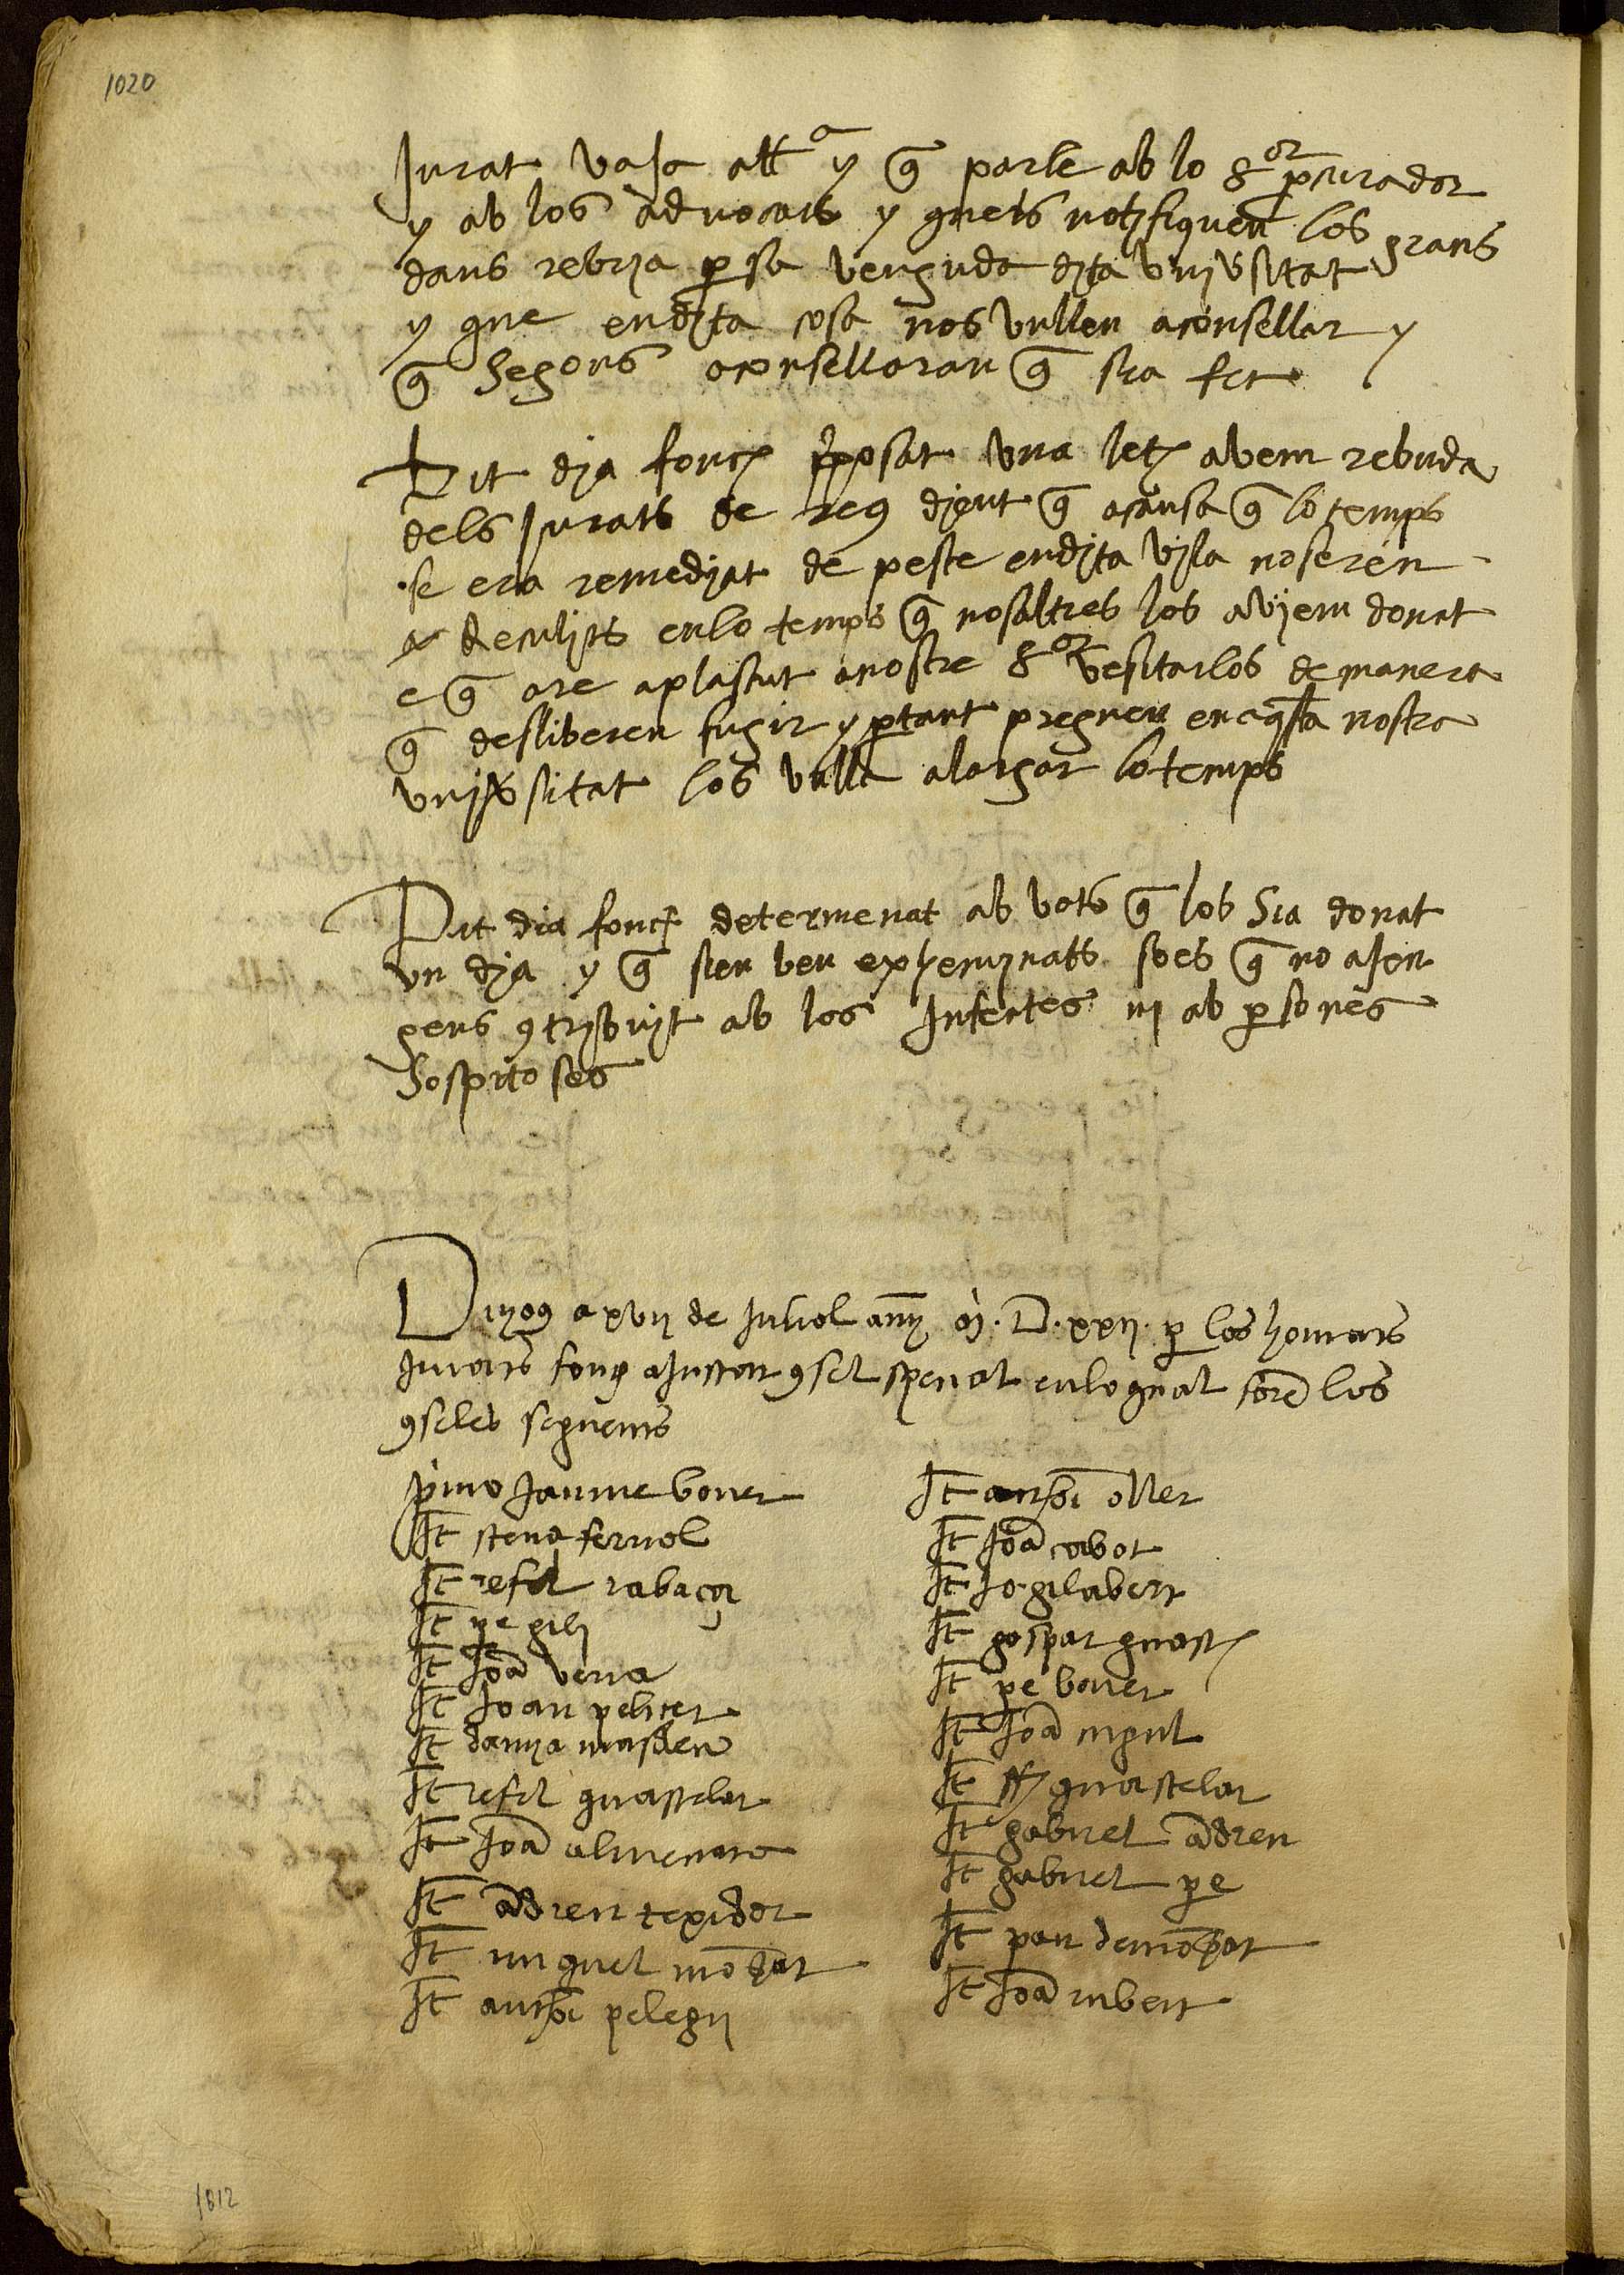 1020
Jurat vaja alla y q̄ parle ab lo sor p̱curador
y ab los advocats y quels notifiquen los grans
dans rebria ꝑ sa venguda dita univsitat
y que endita cosa nos vullen aconsellar y
q̄ segons aconsellaran q̄ sia fet
Dit dia fonch ꝓposat una letr avem rebuda
dels Jurats de reus dient q̄ acausa q̄ lo temps
se era remediat de peste endita vila noseren
reculits enlo temps q̄ nosaltres los aviem donat
e q̄ are aplascut anostre sor vesitarlos de manera
q̄ desliberen fugir y ꝑtant preguen en aqsta nostra
univsitat los vulla alargar lo temps
Dit dia fonch determenat ab vots q̄ los sia donat
un dia y q̄ sien ben exheminats soes q̄ no ajen
gens ꝯtribuit ab los Infectes ni ab ꝑsones
Sospitoses
Dijoꝯ a xvii de Juliol any M.D.xxii. ꝑ los honrats
Jurats fonch ajustat ꝯsel spetial enloqual forē los
ꝯseles seguents
p̄imo Jaume bover
It steva ferriol
It refel rabaça
It ꝑe gili
It Joā verra
It Joan pelicer
It damia masdeu
It refel guastelar
It Joā almenara
It ādreu texidor
It miquel mōbat
It anthōi pelegri
It anthōi oller
It Joā cabot
It Jo. gilabert
It gaspar guash
It ꝑe bover
It Joā migul
It ffr guastelar
It gabriel ādreu
It gabriel ꝑe
It pau demōpat
It Joā rubert
1812